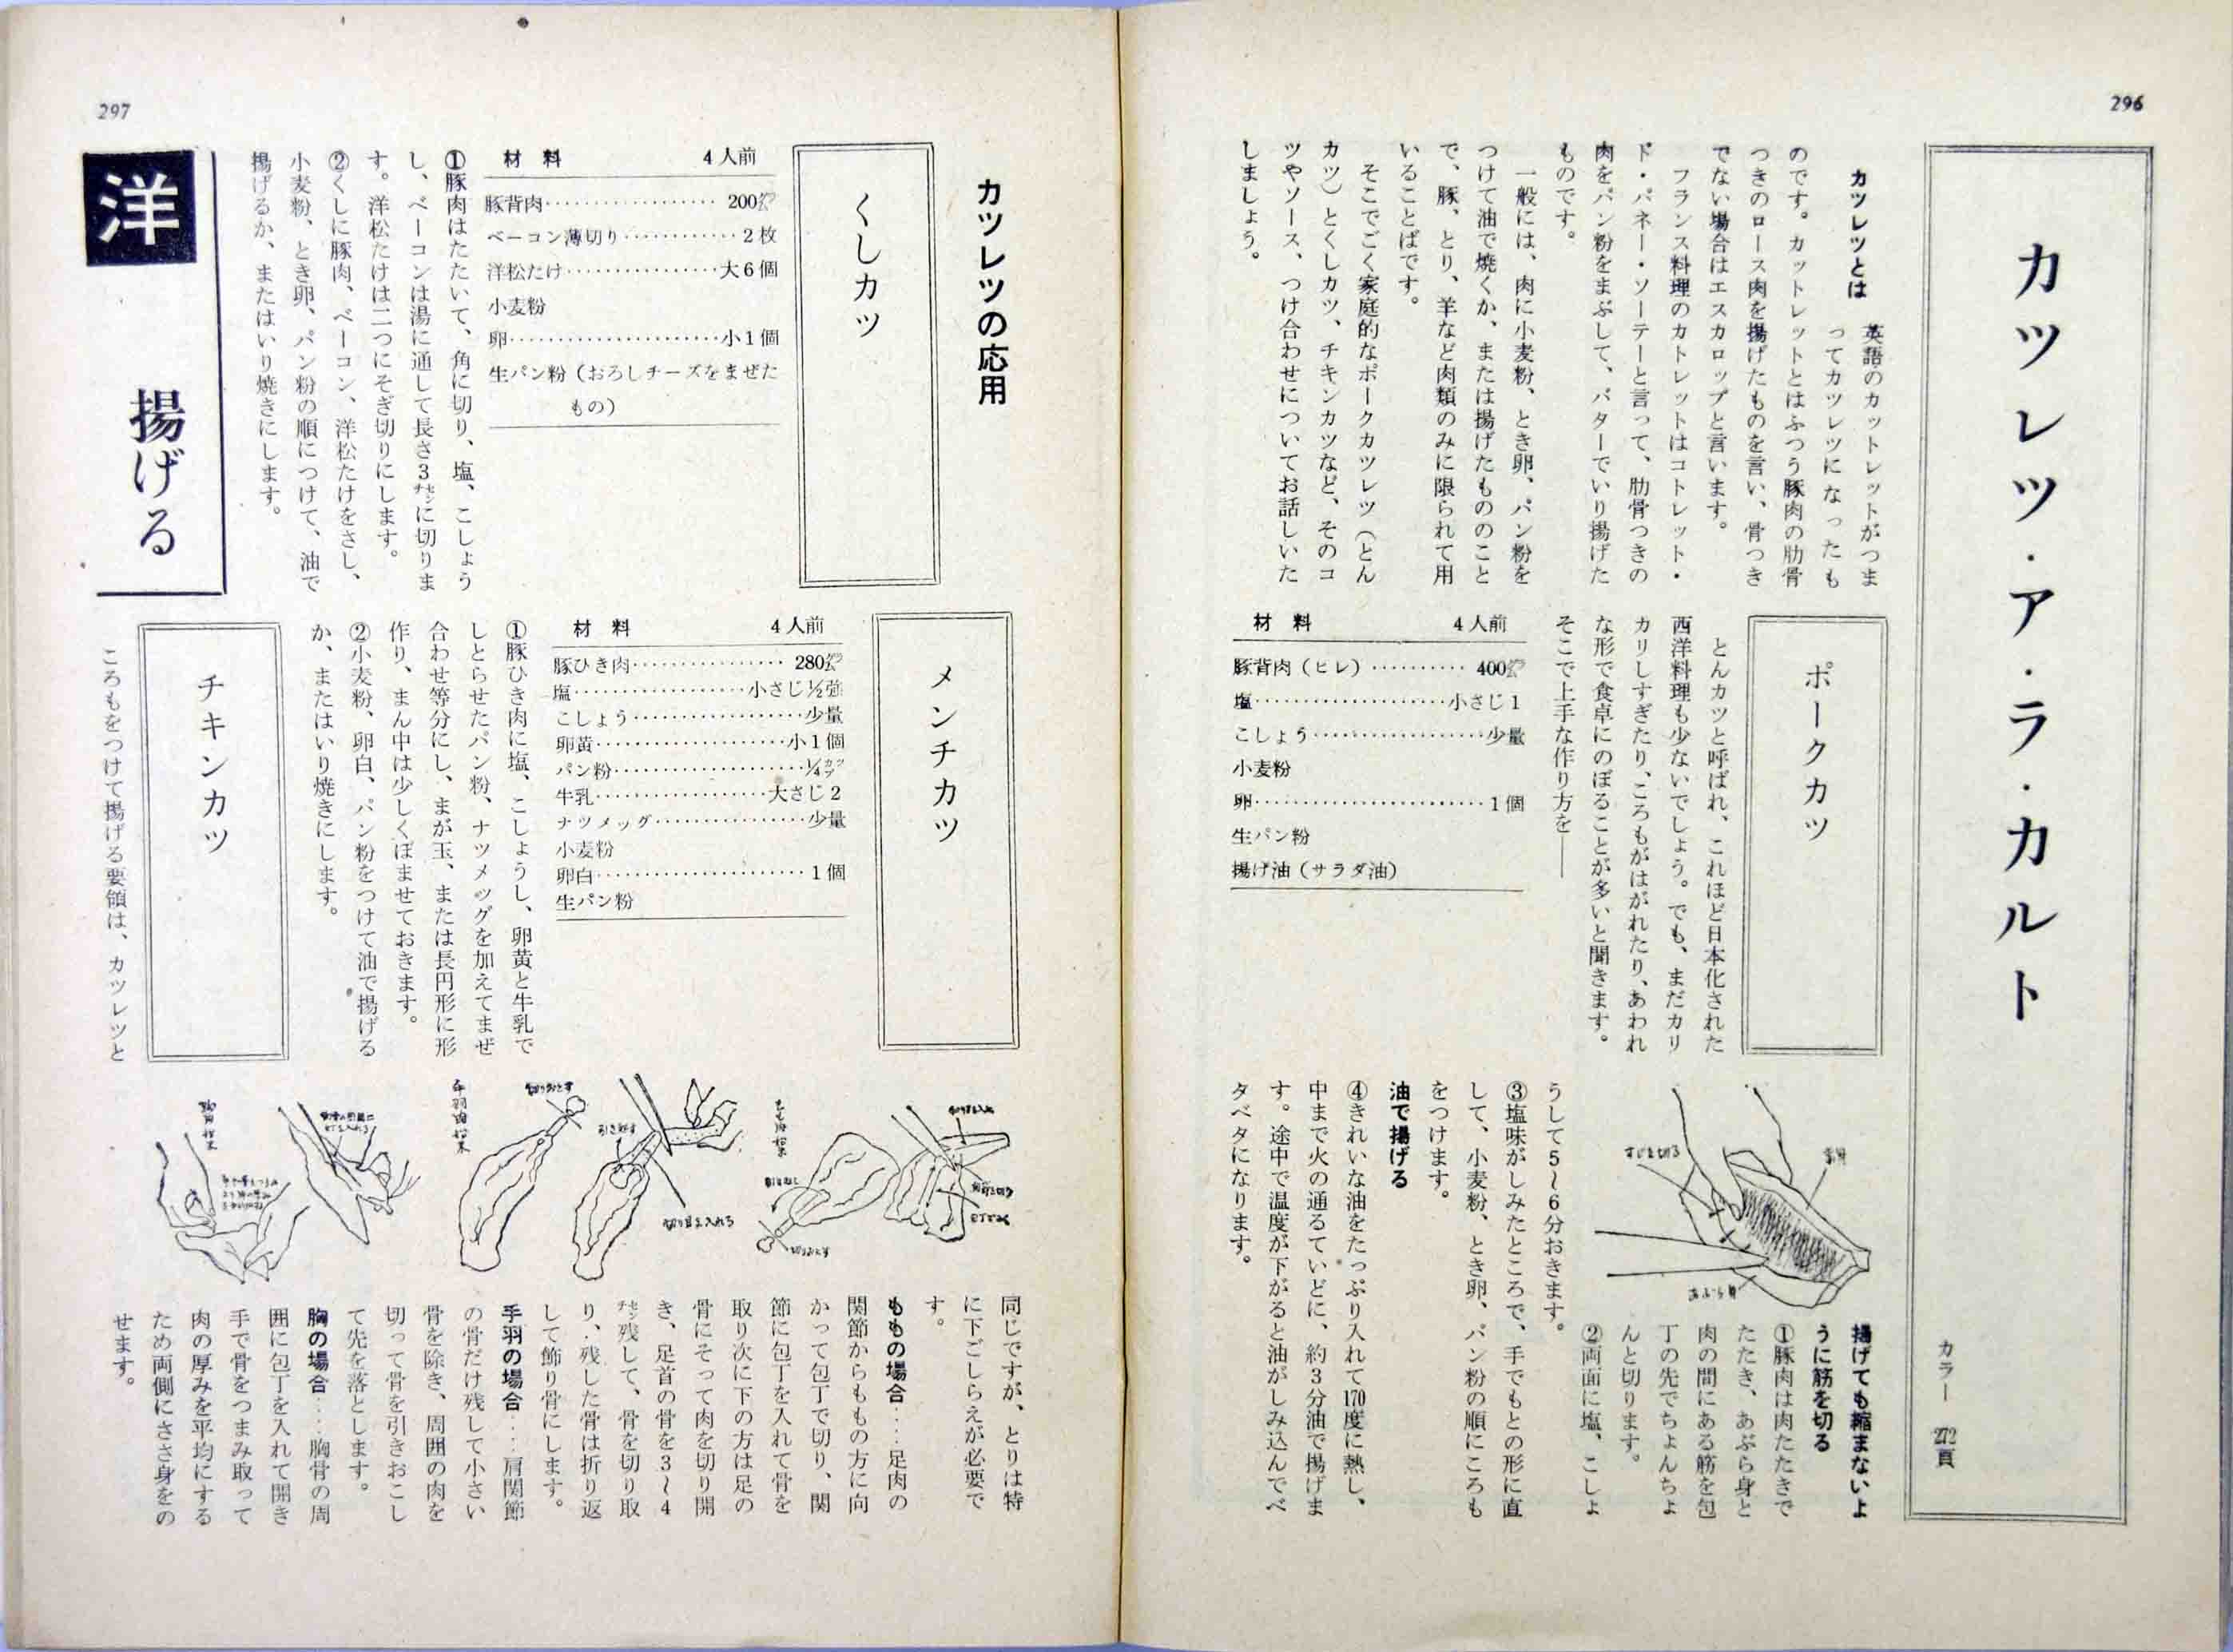 296
カツレツ・ア・ラ・カルト
カラー 272頁
カツレツとは
英語のカットレットがつま
ってカツレツになったも
のです。カットレットとはふつう豚肉の肋骨
つきのロース肉を揚げたものを言い、骨つき
でない場合はエスカロップと言います。
フランス料理のカトレットはコトレット・
ド・パネー・ソーテーと言って、肋骨つきの
肉をパン粉をまぶして、バターでいり揚げた
ものです。
一般には、肉に小麦粉、とき卵、パン粉を
つけて油で焼くか、または揚げたもののこと
で、豚、とり、羊など肉類のみに限られて用
いることばです。
そこでごく家庭的なポークカツレツ(とん
カツ)とくしカツ、チキンカツなど、そのコ
ツやソース、つけ合わせについてお話しいた
しましょう。
ポークカツ
とんカツと呼ばれ、これほど日本化された
西洋料理も少ないでしょう。でも、まだカリ
カリしすぎたり、ころもがはがれたり、あわれ
な形で食卓にのぼることが多いと聞きます。
そこで上手な作り方を――
材料 4人前
豚背肉(ヒレ)………… 400グラム
塩…………………小さじ1
こしょう………………少量
小麦粉
卵……………………1個
生パン粉
揚げ油(サラダ油)
すじを切る
赤身
あぶら身
揚げても縮まないよ
うに筋を切る
①豚肉は肉たたきで
たたき、あぶら身と
肉の間にある筋を包
丁の先でちょんちょ
んと切ります。
②両面に塩、こしょ
うして5〜6分おきます。
③塩味がしみたところで、手でもとの形に直
して、小麦粉、とき卵、パン粉の順にころも
をつけます。
油で揚げる
④きれいな油をたっぷり入れて170度に熱し、
中まで火の通るていどに、約3分油で揚げま
す。途中で温度が下がると油がしみ込んでベ
タベタになります。
297
カツレツの応用
くしカツ
材料 4人前
豚背肉………………… 200グラム
ベーコン薄切り…………2枚
洋松たけ……………大6個
小麦粉
卵…………………小1個
生パン粉(おろしチーズをまぜた
もの)
①豚肉はたたいて、角に切り、塩、こしょう
し、ベーコンは湯に通して長さ3センチに切りま
す。洋松たけは二つにそぎ切りにします。
②くしに豚肉、ベーコン、洋松たけをさし、
小麦粉、とき卵、パン粉の順につけて、油で
揚げるか、またはいり焼きにします。
洋
揚げる
メンチカツ
材料 4人前
豚ひき肉……………… 280グラム
塩…………………小さじ½強
こしょう………………少量
卵黄…………………小1個
パン粉…………………¼カップ
牛乳…………………大さじ2
ナツメッグ………………少量
小麦粉
卵白……………………1個
生パン粉
①豚ひき肉に塩、こしょうし、卵黄と牛乳で
しとらせたパン粉、ナツメッグを加えてまぜ
合わせ等分にし、まが玉、または長円形に形
作り、まん中は少しくぼませておきます。
②小麦粉、卵白、パン粉をつけて油で揚げる
か、またはいり焼きにします。
チキンカツ
ころもをつけて揚げる要領は、カツレツと
切り目を入れる
引き起す
切りおとす
同じですが、とりは特
に下ごしらえが必要で
す。
ももの場合……足肉の
関節からももの方に向
かって包丁で切り、関
節に包丁を入れて骨を
取り次に下の方は足の
骨にそって肉を切り開
き、足首の骨を3〜4
センチ残して、骨を切り取
り、残した骨は折り返
して飾り骨にします。
手羽の場合……肩関節
の骨だけ残して小さい
骨を除き、周囲の肉を
切って骨を引きおこし
て先を落とします。
胸の場合……胸骨の周
囲に包丁を入れて開き
手で骨をつまみ取って
肉の厚みを平均にする
ため両側にささ身をの
せます。